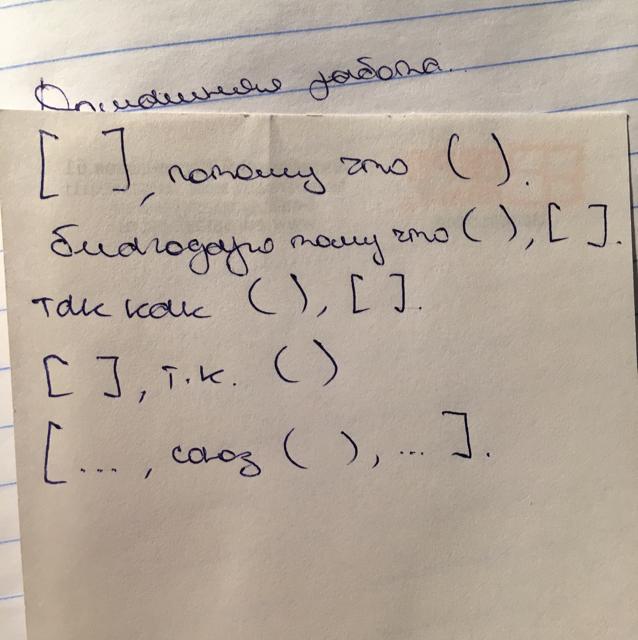 Домашняя работа.
[ ], потому что ( ).
благодаря тому что ( ), [ ].
так как ( ), [ ].
[ ], т.к. ( )
[ ... , союз ( ), ... ].